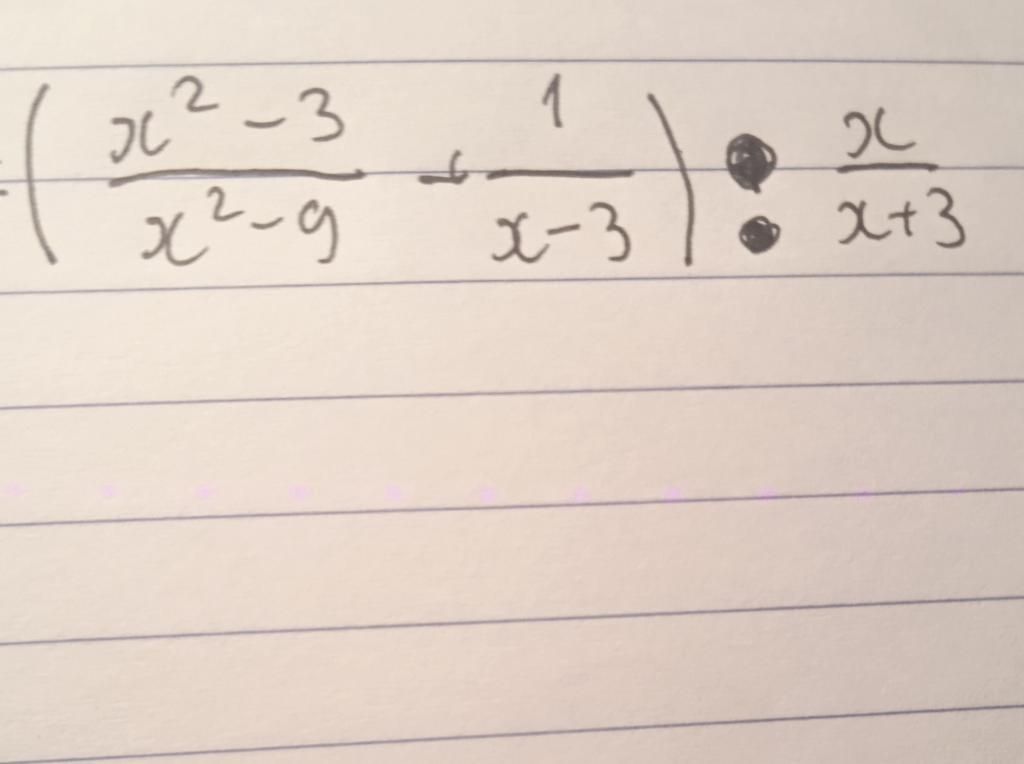 (\frac{x^2-3}{x^2-9} + \frac{1}{x-3}) : \frac{x}{x+3}